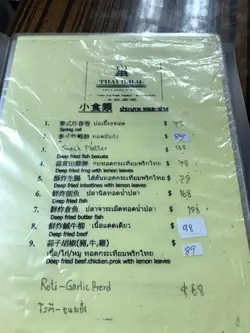 THAI B.B.Q.
小食類 ประเภท ทอด-ย่าง
1. 泰式炸春卷 ปอเปี๊ยะทอด $ 75
Spring roll
2. 泰式炸蝦餅 ทอดมันกุ้ง $
3. Snack Platter $ 168
Deep fried fish biscuits
4. 蒜茸田雞脾 กบทอดกระเทียมพริกไทย $ 78
Deep fried frog with lemon leaves
5. 酥炸生腸 ไส้ตันทอดกระเทียมพริกไทย $ 78
Deep fried intestines with lemon leaves
6. 鮮炸烏魚 ปลานิลทอดน้ำปลา $ 168
Deep fried fish
7. 鮮炸倉魚 ปลาจาระเม็ดทอดน้ำปลา $ 188
Deep fried butter fish
8. 鮮炸鹹牛榔 เนื้อแดดเดียว $ 98
Deep fried beef
9. 蒜子胡椒(豬,牛,雞) $ 89
เนื้อ/ไก่/หมู ทอดกระเทียมพริกไทย
Deep fried beef,chicken.prok with lemon leaves
Roti-Garlic Bread $ 68
โรตี-ขนมปัง